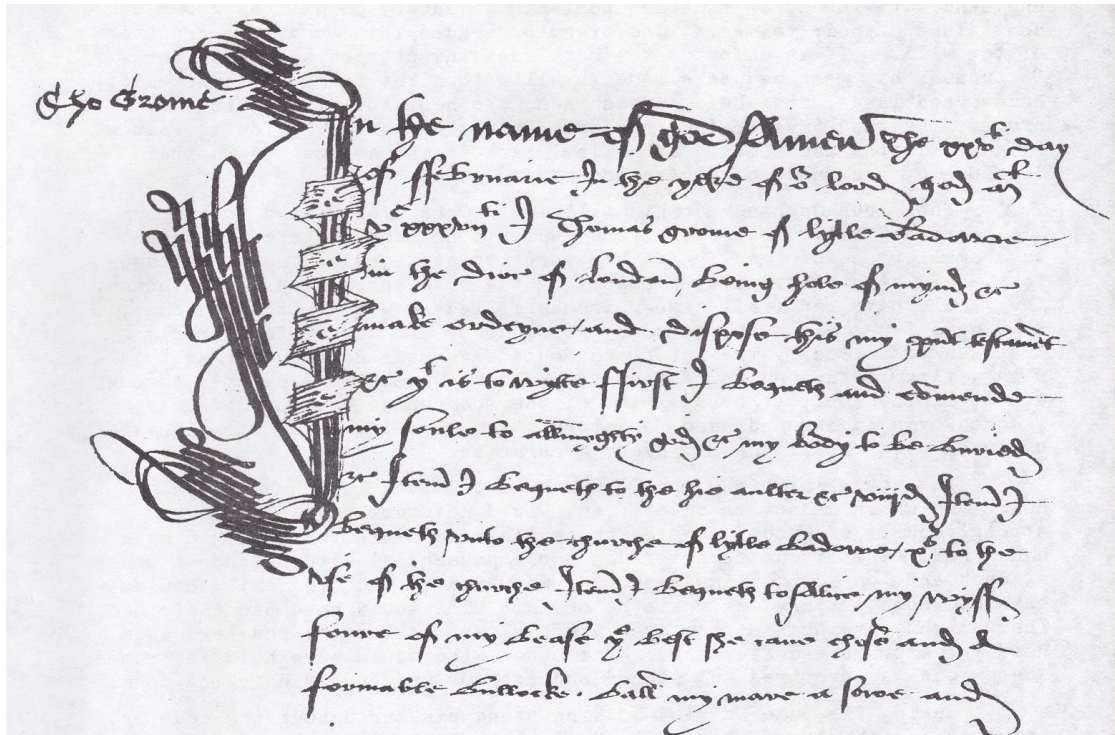 Tho Grome
In the name of god Amen The xxvth day
of ffebruarie In the yere of or lord god ml
vc xxxvii I Thomas grome of lytle Badowe
in the dioc of london being hole of mynd &c
make ordeyne and dispose this my pnt testament
&c yt is to wytte ffirst I bequeth and comende
my soule to allmyghty god &c my body to be buried
&c Item I bequeth to the hie aulter &c viiid Item I
bequeth unto the churche of lytle Badowe xs to the
use of the churche Item I bequeth to Alice my wyff
foure of my beasse ye best she cane chose and
formable bullocke ball my mare a sowe and